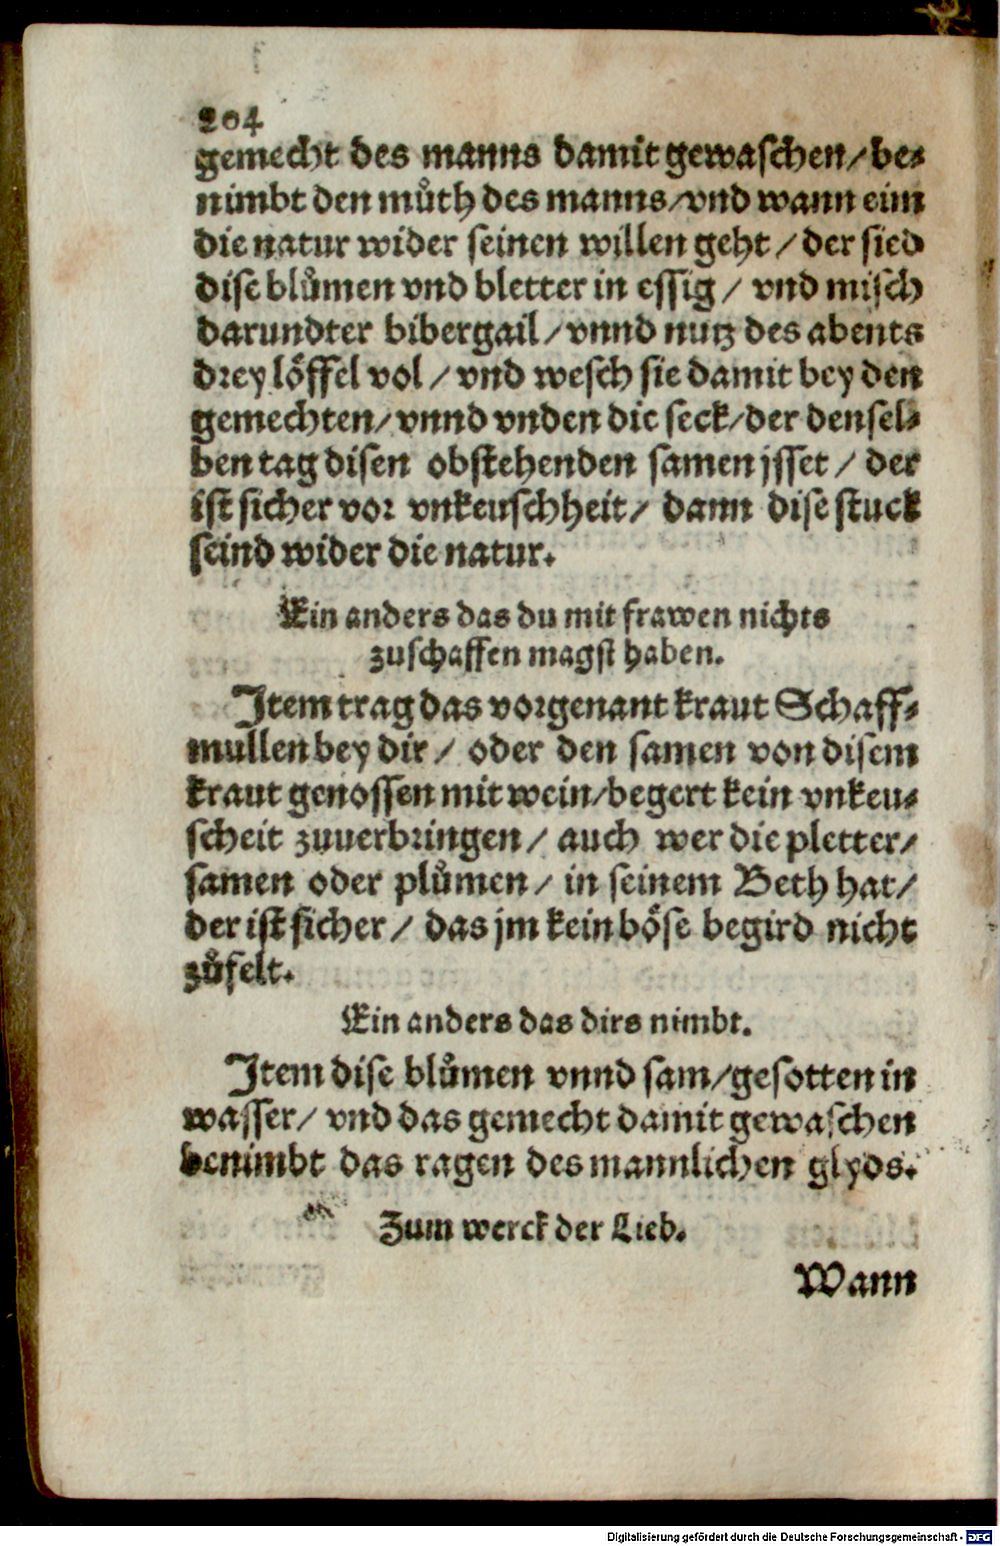 204
gemecht des manns damit gewaschen/be⸗
nimbt den můth des manns/vnd wann eim
die natur wider seinen willen geht/der sied
dise blůmen vnd bletter in essig/vnd misch
darundter bibergail/vnnd nutz des abents
drey löffel vol/vnd wesch sie damit bey den
gemechten/vnnd vnden die seck/der densel⸗
ben tag disen obstehenden samen jsset/der
ist sicher vor vnkeuschheit/dann dise stuck
seind wider die natur.
Ein anders das du mit frawen nichts
zuschaffen magst haben.
Item trag das vorgenant kraut Schaff⸗
mullen bey dir/oder den samen von disem
kraut genossen mit wein/begert kein vnkeu⸗
scheit zuuerbringen/auch wer die pletter/
samen oder plůmen/in seinem Beth hat/
der ist sicher/das jm kein böse begird nicht
zůfelt.
Ein anders das dirs nimbt.
Item dise blůmen vnnd sam/gesotten in
wasser/vnd das gemecht damit gewaschen
benimbt das ragen des mannlichen glyds.
Zum werck der Lieb.
Wann
Digitalisierung gefördert durch die Deutsche Forschungsgemeinschaft - DFG